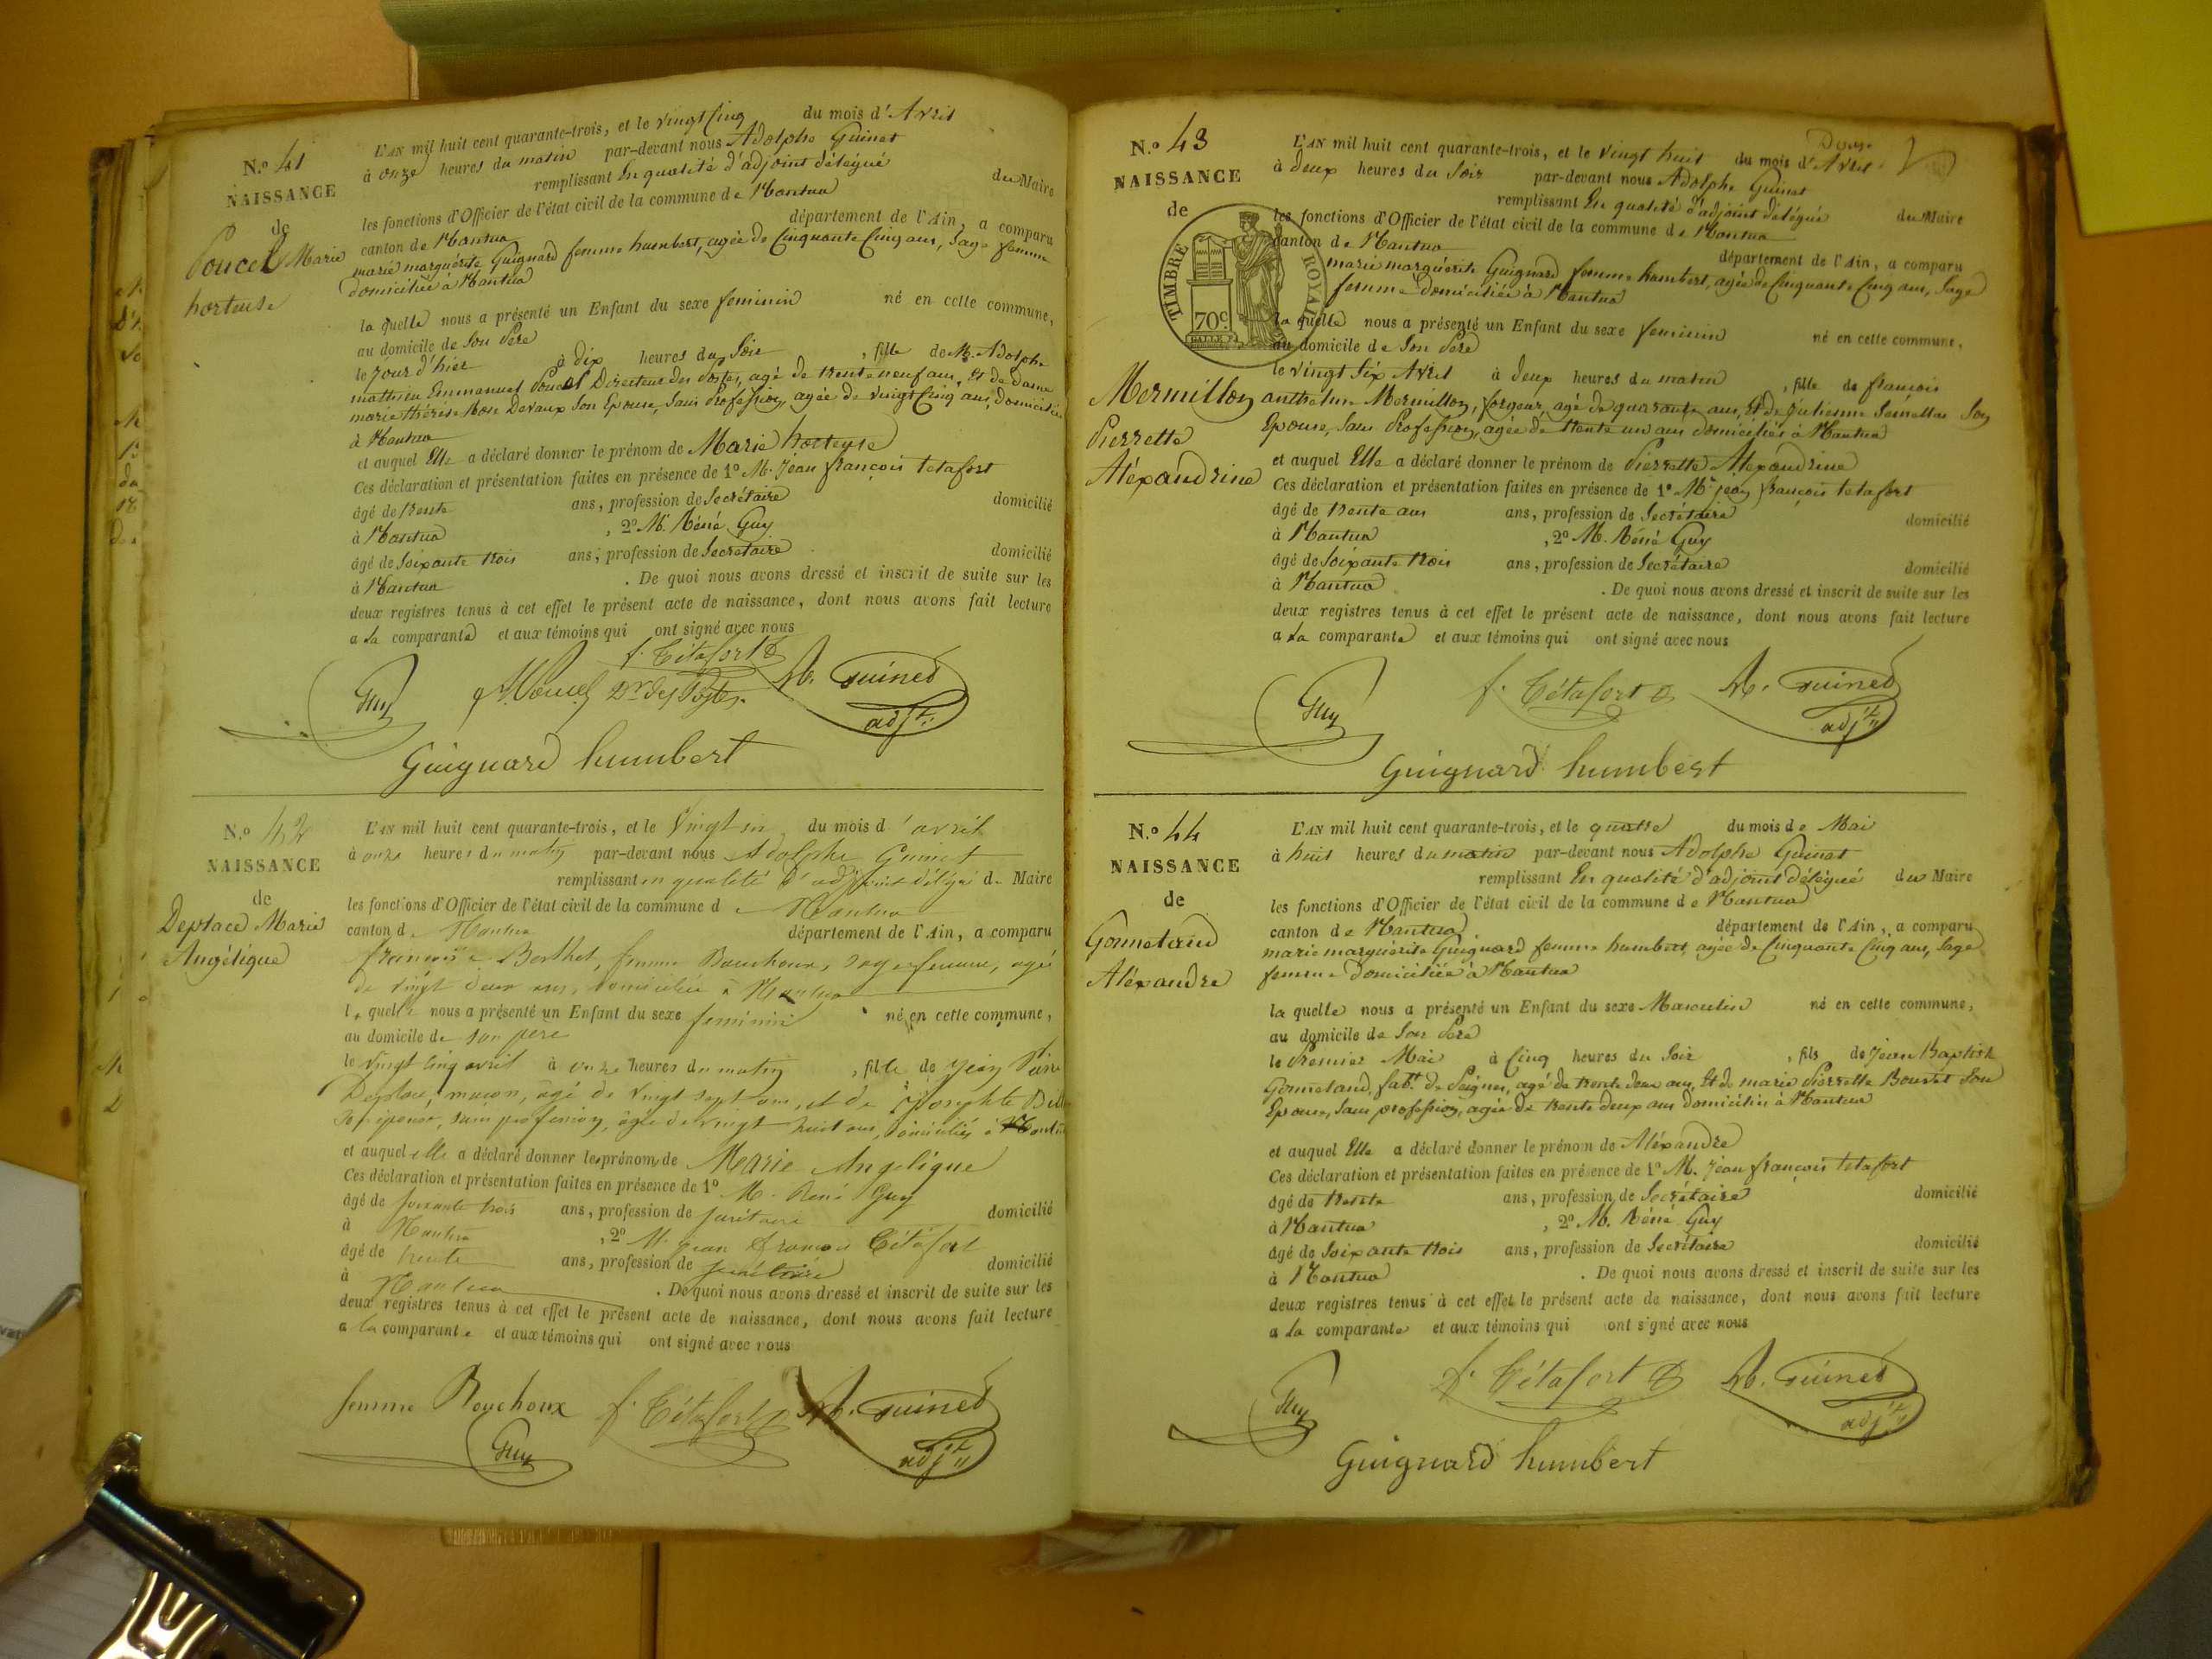 N.º 41
NAISSANCE
de
Poucel Marie
hortense
L'AN mil huit cent quarante-trois, et le vingt Cinq du mois d'Avril
à onze heures du matin par-devant nous Adolphe Guinet
remplissant En qualité d'adjoint délégué du Maire
les fonctions d'Officier de l'état civil de la commune de Nantua
canton de Nantua département de l'Ain, a comparu
marie marguérite Guignard femme humbert, agée de Cinquante Cinq ans, Sage femme
domiciliée à Nantua
la quelle nous a présenté un Enfant du sexe feminin né en cette commune,
au domicile de Son Père
le jour d'hier à dix heures du Soir, fille de M. Adolphe
mathieu Emmanuel Poucel Directeur des Postes, agé de trente neuf ans, Et de Dame
marie thérèse Devaux Son Epouse, Sans Profession, agée de vingt Cinq ans, domiciliés
à Nantua
et auquel Elle a déclaré donner le prénom de Marie hortense
Ces déclaration et présentation faites en présence de 1º M. Jean françois tetafort
âgé de trente ans, profession de Secrétaire domicilié
à Nantua, 2º M. Réné Guy
âgé de Soixante trois ans, profession de Secrétaire domicilié
à Nantua. De quoi nous avons dressé et inscrit de suite sur les
deux registres tenus à cet effet le présent acte de naissance, dont nous avons fait lecture
a la comparante et aux témoins qui ont signé avec nous
f. Tétafort
Guy A. Poucel Dr des Postes. A. Guinet
adjt
Guignard humbert
N.º 42
NAISSANCE
de
Deplace Marie
Angélique
L'AN mil huit cent quarante-trois, et le vingt six du mois d'avril
à onze heures du matin par-devant nous Adolphe Guinet
remplissant en qualité d'adjoint délégué du Maire
les fonctions d'Officier de l'état civil de la commune de Nantua
canton de Nantua département de l'Ain, a comparu
françoise Berthet, femme Bouchoux, sage femme, agée
de vingt deux ans, domiciliée à Nantua
la quelle nous a présenté un Enfant du sexe feminin né en cette commune,
au domicile de son père
le vingt cinq avril à onze heures du matin, fille de Jean
Deplace, maçon, âgé de vingt sept ans, et de Josephte
son épouse, sans profession, âgée de vingt huit ans, domiciliés à Nantua
et auquel elle a déclaré donner les prénom de Marie Angélique
Ces déclaration et présentation faites en présence de 1º M. René Guy
âgé de soixante trois ans, profession de secrétaire domicilié
à Nantua, 2º M. jean françois Tétafort
âgé de trente ans, profession de secrétaire domicilié
à Nantua. De quoi nous avons dressé et inscrit de suite sur les
deux registres tenus à cet effet le présent acte de naissance, dont nous avons fait lecture
a la comparante et aux témoins qui ont signé avec nous
femme Bouchoux f. Tétafort A. Guinet
Guy adjt
N.º 43
NAISSANCE
de
TIMBRE ROYAL
70c
Mermillon
Pierrette
Aléxandrine
L'AN mil huit cent quarante-trois, et le vingt huit du mois d'Avril
à deux heures du Soir par-devant nous Adolphe Guinet
remplissant En qualité d'adjoint délégué du Maire
les fonctions d'Officier de l'état civil de la commune de Nantua
canton de Nantua département de l'Ain, a comparu
marie marguérite Guignard femme humbert, agée de Cinquante Cinq ans, Sage
femme domiciliée à Nantua
la quelle nous a présenté un Enfant du sexe feminin né en cette commune,
au domicile de Son Père
le vingt Six Avril à deux heures du matin, fille de françois
anthelme Mermillon, forgeur, agé de quarante ans, Et de Julienne Son
Epouse, Sans Profession, agée de trente un ans domiciliés à Nantua
et auquel Elle a déclaré donner le prénom de Pierrette Aléxandrine
Ces déclaration et présentation faites en présence de 1º Mr jean françois tetafort
âgé de trente ans ans, profession de Secrétaire domicilié
à Nantua, 2º M. Réné Guy
âgé de Soixante trois ans, profession de Secrétaire domicilié
à Nantua. De quoi nous avons dressé et inscrit de suite sur les
deux registres tenus à cet effet le présent acte de naissance, dont nous avons fait lecture
a la comparante et aux témoins qui ont signé avec nous
Guy f. Tétafort A. Guinet
adjt
Guignard humbert
N.º 44
NAISSANCE
de
Gometand
Aléxandre
L'AN mil huit cent quarante-trois, et le quatre du mois de Mai
à huit heures du matin par-devant nous Adolphe Guinet
remplissant En qualité d'adjoint délégué du Maire
les fonctions d'Officier de l'état civil de la commune de Nantua
canton de Nantua département de l'Ain, a comparu
marie marguérite Guignard femme humbert, agée de Cinquante Cinq ans, Sage
femme domiciliée à Nantua
la quelle nous a présenté un Enfant du sexe Masculin né en cette commune,
au domicile de Son Père
le Premier Mai à Cinq heures du Soir, fils de Jean Baptiste
Gometand, fabt de Peignes, agé de trente deux ans, Et de marie Pierrette Bouvet Son
Epouse, Sans profession, agée de trente deux ans domiciliés à Nantua
et auquel Elle a déclaré donner le prénom de Aléxandre
Ces déclaration et présentation faites en présence de 1º M. Jean françois tetafort
âgé de trente ans, profession de Secrétaire domicilié
à Nantua, 2º M. Réné Guy
âgé de Soixante trois ans, profession de Secrétaire domicilié
à Nantua. De quoi nous avons dressé et inscrit de suite sur les
deux registres tenus à cet effet le présent acte de naissance, dont nous avons fait lecture
a la comparante et aux témoins qui ont signé avec nous
Guy f. Tétafort A. Guinet
adjt
Guignard humbert